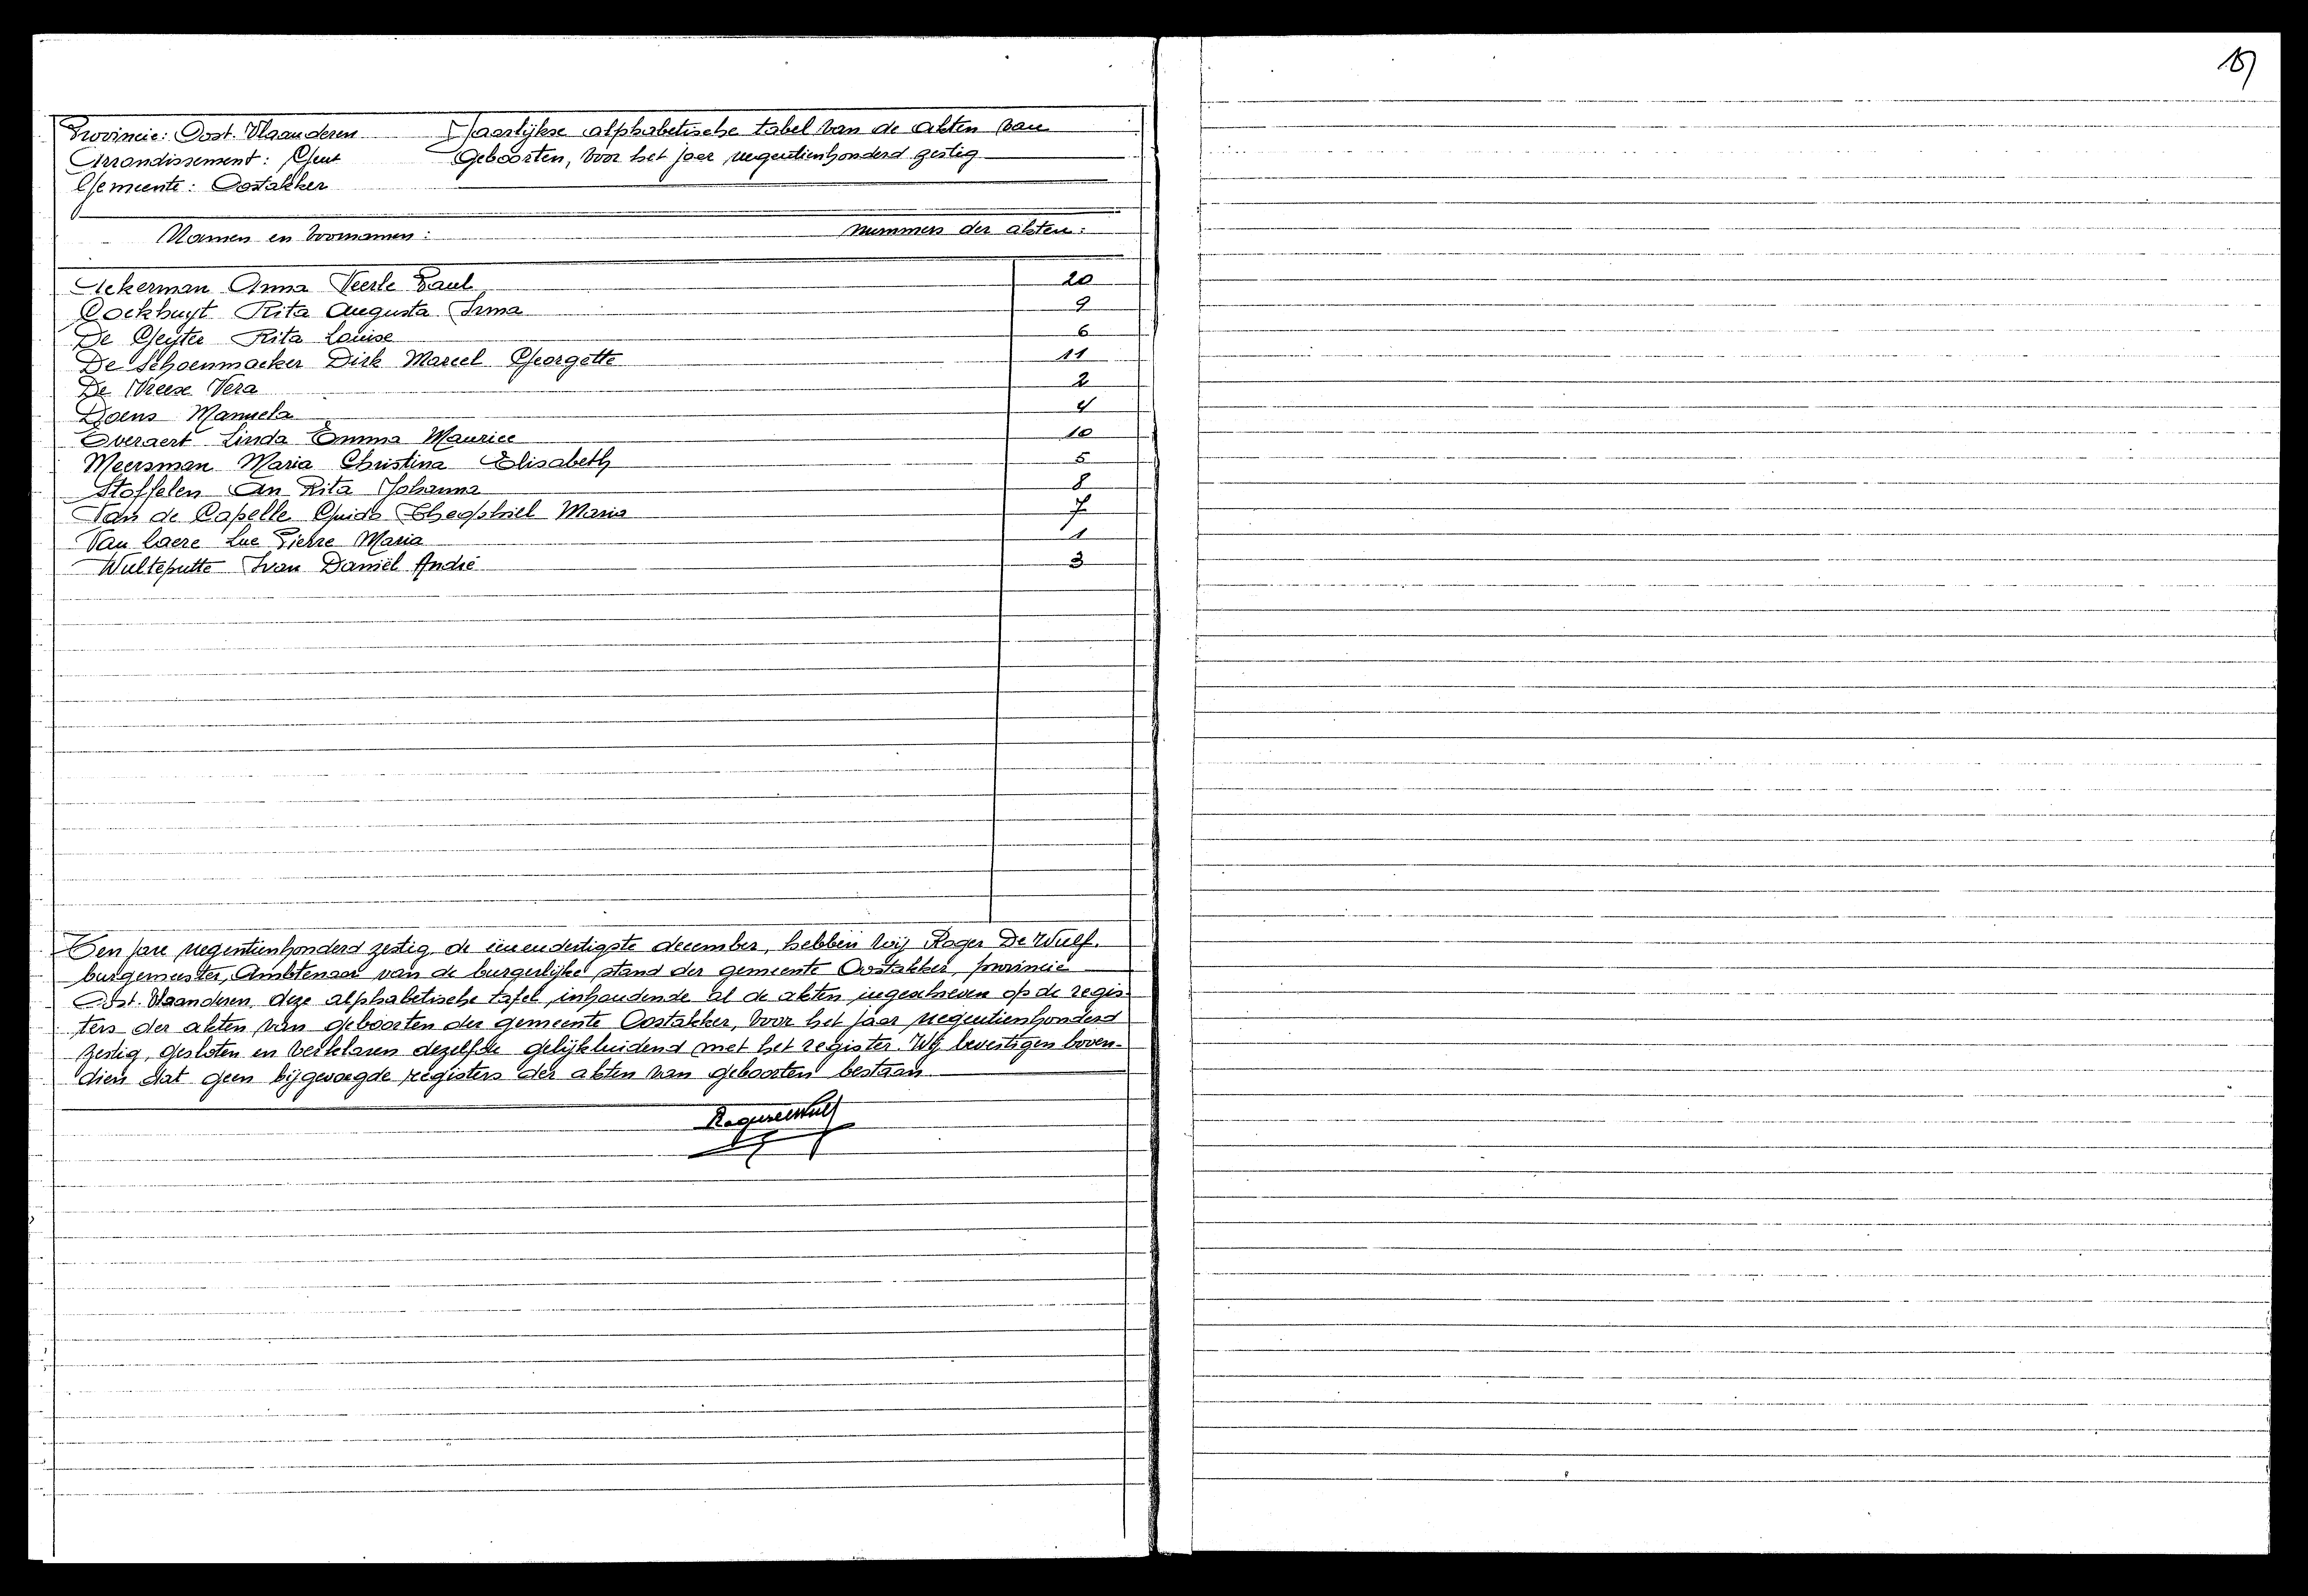 15
Provincie: Oost-Vlaanderen Jaarlijkse alphabetische tabel van de akten van
Arrondissement: Gent Geboorten, voor het jaar negentienhonderd zestig
Gemeente: Oostakker
Namen en voornamen: nummers der akten:
Ackerman Anna Veerle Paul 20
Cockhuyt Rita Augusta Irma 9
De Geyter Rita Louise 6
De Schoenmaeker Dirk Marcel Georgette 11
De Vreese Vera 2
Doens Manuela 4
Everaert Linda Emma Maurice 10
Meersman Maria Christina Elisabeth 5
Stoffelen An Rita Johanna 8
Van de Capelle Guido Theophiel Maria 7
Van Laere Luc Pierre Maria 1
Wulteputte Ivan Daniël André 3
Ten jare negentienhonderd zestig, de eenendertigste december, hebben wij Roger De Wulf,
burgemeester, Ambtenaar van de burgerlijke stand der gemeente Oostakker, provincie
Oost-Vlaanderen, deze alphabetische tafel, inhoudende al de akten ingeschreven op de regis-
ters der akten van geboorten der gemeente Oostakker, voor het jaar negentienhonderd
zestig, gesloten en verklaren dezelfde gelijkluidend met het register. Wij bevestigen boven-
dien dat geen bijgevoegde registers der akten van geboorten bestaan